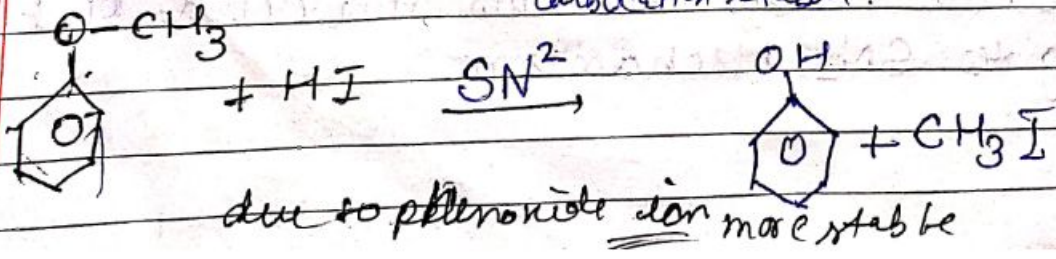 O-CH3
+ HI SN² → OH
+ CH3I
due to phenoxide ion more stable